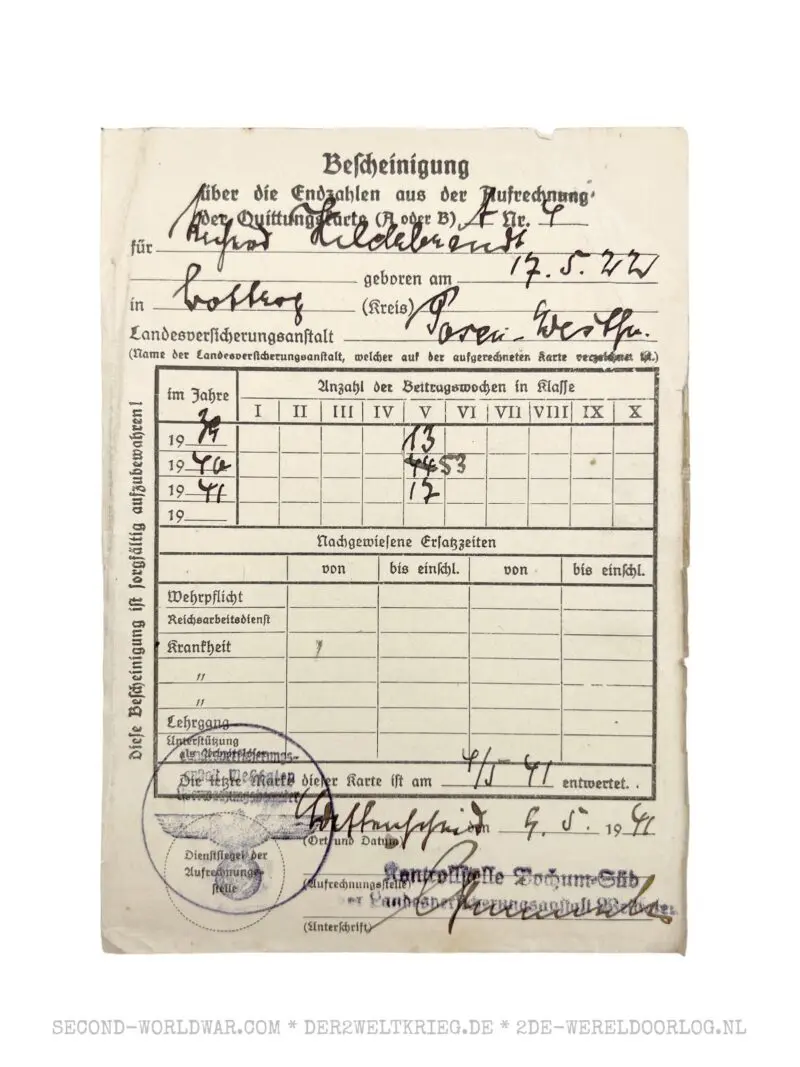 Bescheinigung
über die Endzahlen aus der Aufrechnung
der Quittungskarte (A oder B) A Nr. 4
für Hildebrandt
geboren am 17. 5. 22
in (Kreis) Posen - Westf.
Landesversicherungsanstalt
(Name der Landesversicherungsanstalt, welcher auf der aufgerechneten Karte verzeichnet ist.)
im Jahre Anzahl der Beitragswochen in Klasse
I II III IV V VI VII VIII IX X
19 39 13
19 40 44 53
19 41 17
19
Nachgewiesene Ersatzzeiten
von bis einschl. von bis einschl.
Wehrpflicht
Reichsarbeitsdienst
Krankheit
"
"
Lehrgang
Unterstützung
als Arbeitsloser
Die letzte Marke dieser Karte ist am 4/5 41 entwertet.
Diese Bescheinigung ist sorgfältig aufzubewahren!
Landesversicherungs-
anstalt Westfalen
Überwachungsbeamter
Wattenscheid den 9. 5. 1941
(Ort und Datum)
Dienstsiegel der
Aufrechnungs-
stelle
Kontrollstelle Bochum-Süd
(Aufrechnungsstelle)
der Landesversicherungsanstalt Westfalen
(Unterschrift)
SECOND-WORLDWAR.COM * DER2WELTKRIEG.DE * 2DE-WERELDOORLOG.NL